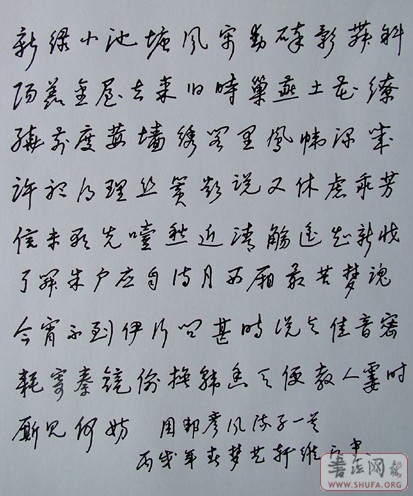 新绿小池塘风帘动碎影舞斜
阳羡金屋去来旧时巢燕土花缭
绕前度莓墙绣阁里凤帏深几
许听得理丝簧欲说又休虑乖芳
信未歌先噎愁近清觞遥知新妆
了开朱户应自待月西厢最苦梦魂
今宵不到伊行问甚时说与佳音密
耗寄秦镜偷换韩香天便教人霎时
厮见何妨 周邦彦风流子一首
丙戌年春梦艺轩维书
书法网
WWW.SHUFA.ORG